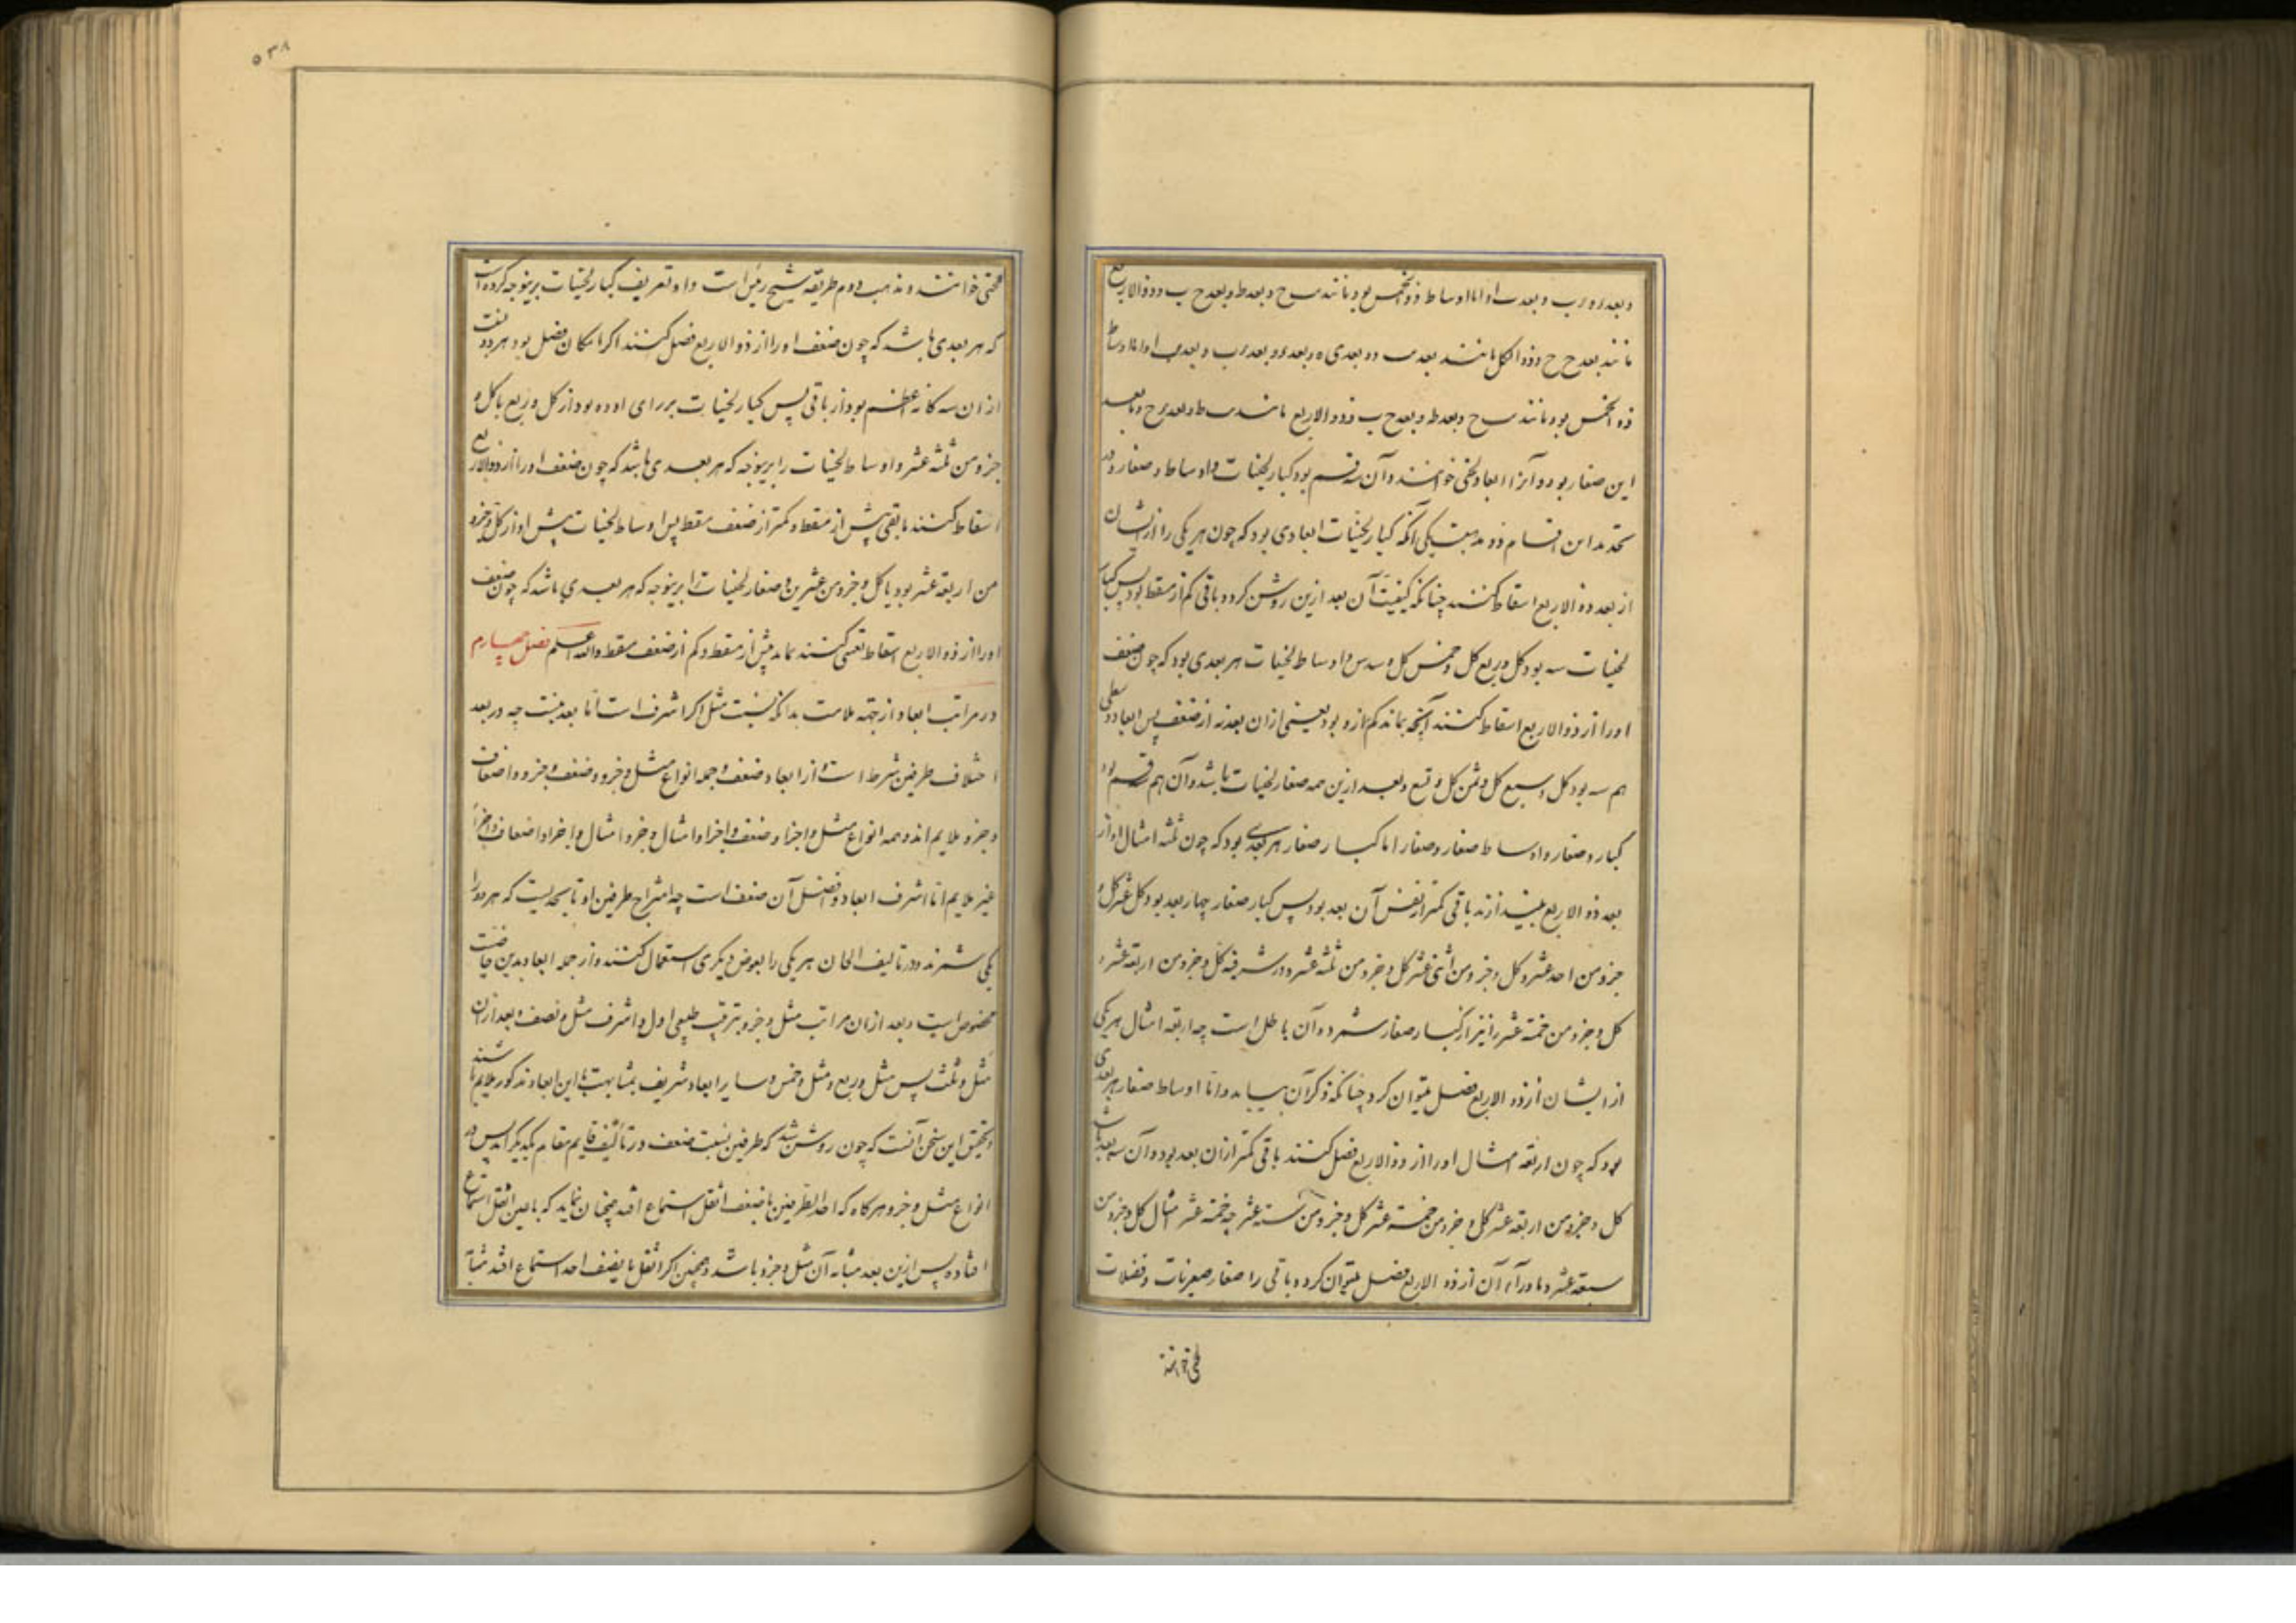 مانند بعد ح ح و ذو الکل مانند بعد
ذو الخمس بود مانند وبعد ط وبعد ح ب و ذو الاربع مانند
این صغار بود و آنرا ابعاد لحنی خوانند و آن سه قسم بود کبار لحنیات و اوساط و صغار و در
تحدید این اقسام دو مذهبست یکی آنکه کبار لحنیات ابعادی بود که چون هر یکی را از ایشان
از بعد ذو الاربع اسقاط کنند چنانکه کیفیت آن بعد ازین روشن کردد باقی کم از مسقط بود پس کبار
لحنیات سه بود کل و ربع کل و خمس کل و سدس و اوساط لحنیات هر بعدی بود که چون ضعف
اورا از ذو الاربع اسقاط کنند آنچه بماند کم ازو بود یعنی ازان بعد نه از ضعف پس ابعاد وسطی
هم سه بود کل و سبع کل و ثمن کل و تسع و بعد ازین همه صغار لحنیات باشد و آن هم قسم بود
کبار و صغار و اوساط صغار و صغار اما کبار صغار هر بعدی بود که چون ثلثه امثال او از
بعد ذو الاربع بیندازند باقی کمتر از نفس آن بعد بود پس کبار صغار چهار بعد بود کل و عشر کل و
جزو من احد عشر و کل و جزو من اثنی عشر کل و جزو من ثلثه عشر و در شرفیه کل و جزو من اربعة عشر و
کل و جزو من خمسة عشر را نیز از کبار صغار شمرده و آن باطل است چه اربعة امثال هر یکی
از ایشان از ذو الاربع فصل میتوان کرد چنانکه ذکر آن بیاید و اما اوساط صغار هر بعدی
بود که چون اربعة امثال اورا از ذو الاربع فصل کنند باقی کمتر ازان بعد بود و آن سه بعد باشد
کل و جزو من اربعة عشر کل و جزو من خمسة عشر کل و جزو من ستة عشر چه خمسة عشر امثال کل و جزو من
سبعة عشر و ماوراء آن از ذو الاربع فصل میتوان کرد و باقی را صغار صغریات و فضلات
لحنی خوانند
۵۳۸
لحنی خوانند و مذهب دوم طریقه شیخ رئیس است و او تعریف کبار لحنیات برینوجه کرده است
که هر بعدی باشد که چون ضعف اورا از ذو الاربع فصل کنند اکر امکان فصل بود هر دو
ازان سه کانه اعظم بود از باقی پس کبار لحنیات بر رای او ده بود از کل و ربع تا کل و
جزو من ثلثه عشر و اوساط لحنیات را برینوجه که هر بعدی باشد که چون ضعف اورا از ذو الاربع
اسقاط کنند مابقی بیش از مسقط و کمتر از ضعف مسقط پس اوساط لحنیات پیش او از کل و جزو
من اربعة عشر بود تا کل و جزو من عشرین و صغار لحنیات را برینوجه که هر بعدی باشد که چون ضعف
اورا از ذو الاربع اسقاط کنند بماند بیش از مسقط و کم از ضعف مسقط والله اعلم فصل چهارم
در مراتب ابعاد از جهة ملایمت بدانکه نسبت مثل اکر اشرف است اما بعد نیست چه در بعد
اختلاف طرفین شرط است و از ابعاد ضعف و جمله انواع مثل و جزو و ضعف و جزو و اضعاف
و جزو ملایم اند و همه انواع مثل و اجزاء و ضعف و اجزا و امثال و جزو و امثال و اجزا و اضعاف و اجزا
غیر ملایم اما اشرف ابعاد و افضل آن ضعف است چه امتزاج طرفین او تا بحدیست که هر دو را
یکی شمرند و در تالیف الحان هر یکی را بعوض دیکری استعمال کنند و از جمله ابعاد بدین خاصیت
مخصوص است و بعد ازان مراتب مثل و جزو بترتیب طبیعی اول و اشرف مثل و نصف و بعد ازان
مثل و ثلث پس مثل و ربع و مثل و خمس و سایر ابعاد شریف بمشابهت این ابعاد مذکور ملایم باشند
و تحقیق این سخن آنست که چون روشن شد که طرفین نسبت ضعف در تالیف قایم مقام یکدیکراند پس در
انواع مثل و جزو هرکاه که احد الطرفین با ضعف اثقل استماع افتد چنان نماید که با عین اثقل استماع
افتاده پس ازین بعد مشابه آن مثل و جزو باشد و همچنین اکر اثقل با نصف احد استماع افتد مشابه